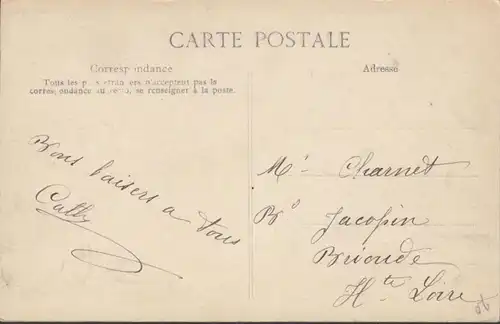 CARTE POSTALE
Correspondance
Tous les pays étrangers n'acceptent pas le
correspondance au recto, se renseigner à la poste.
Adresse
Bons baisers a tous
Mr Charnet
Bd Jacopin
Brioude
Hte Loire